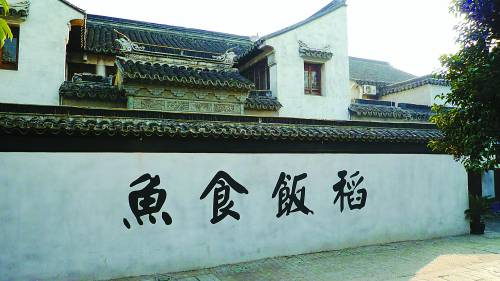 魚食飯稻